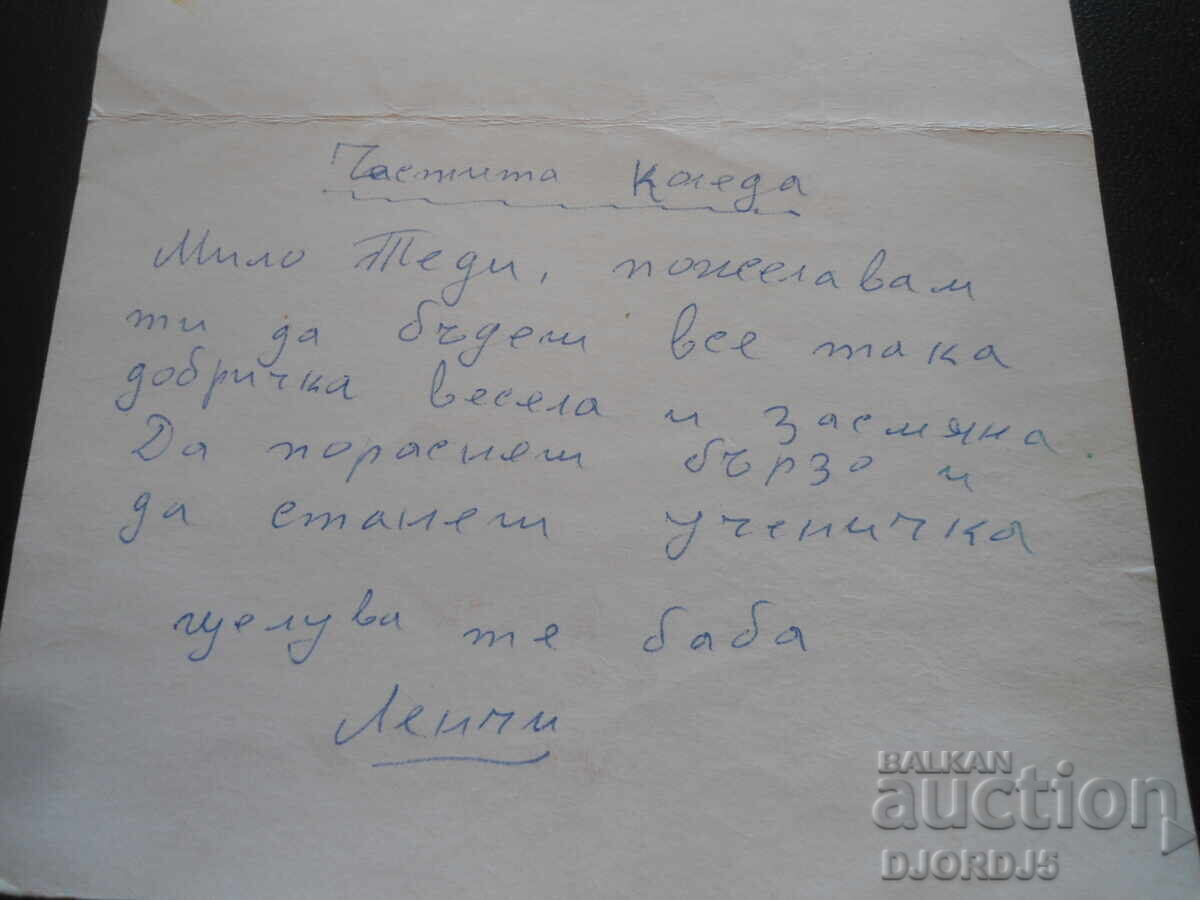 Честита Коледа
Мило Теди, пожелавам
ти да бъдеш все така
добричка весела и засмяна
Да пораснеш бързо и
да станеш ученичка
целува те баба
Ленчи
BALKAN
auction
DJORDJ5